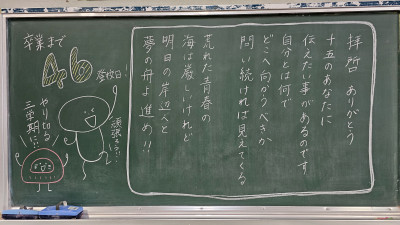 拝啓 ありがとう
十五のあなたに
伝えたい事があるのです
自分とは何で
どこへ向かうべきか
問い続ければ見えてくる
荒れた青春の
海は厳しいけれど
明日の岸辺へと
夢の舟よ進め!!
卒業まで
46
登校日!
頑張ろう!!
やり切る
三学期に!!